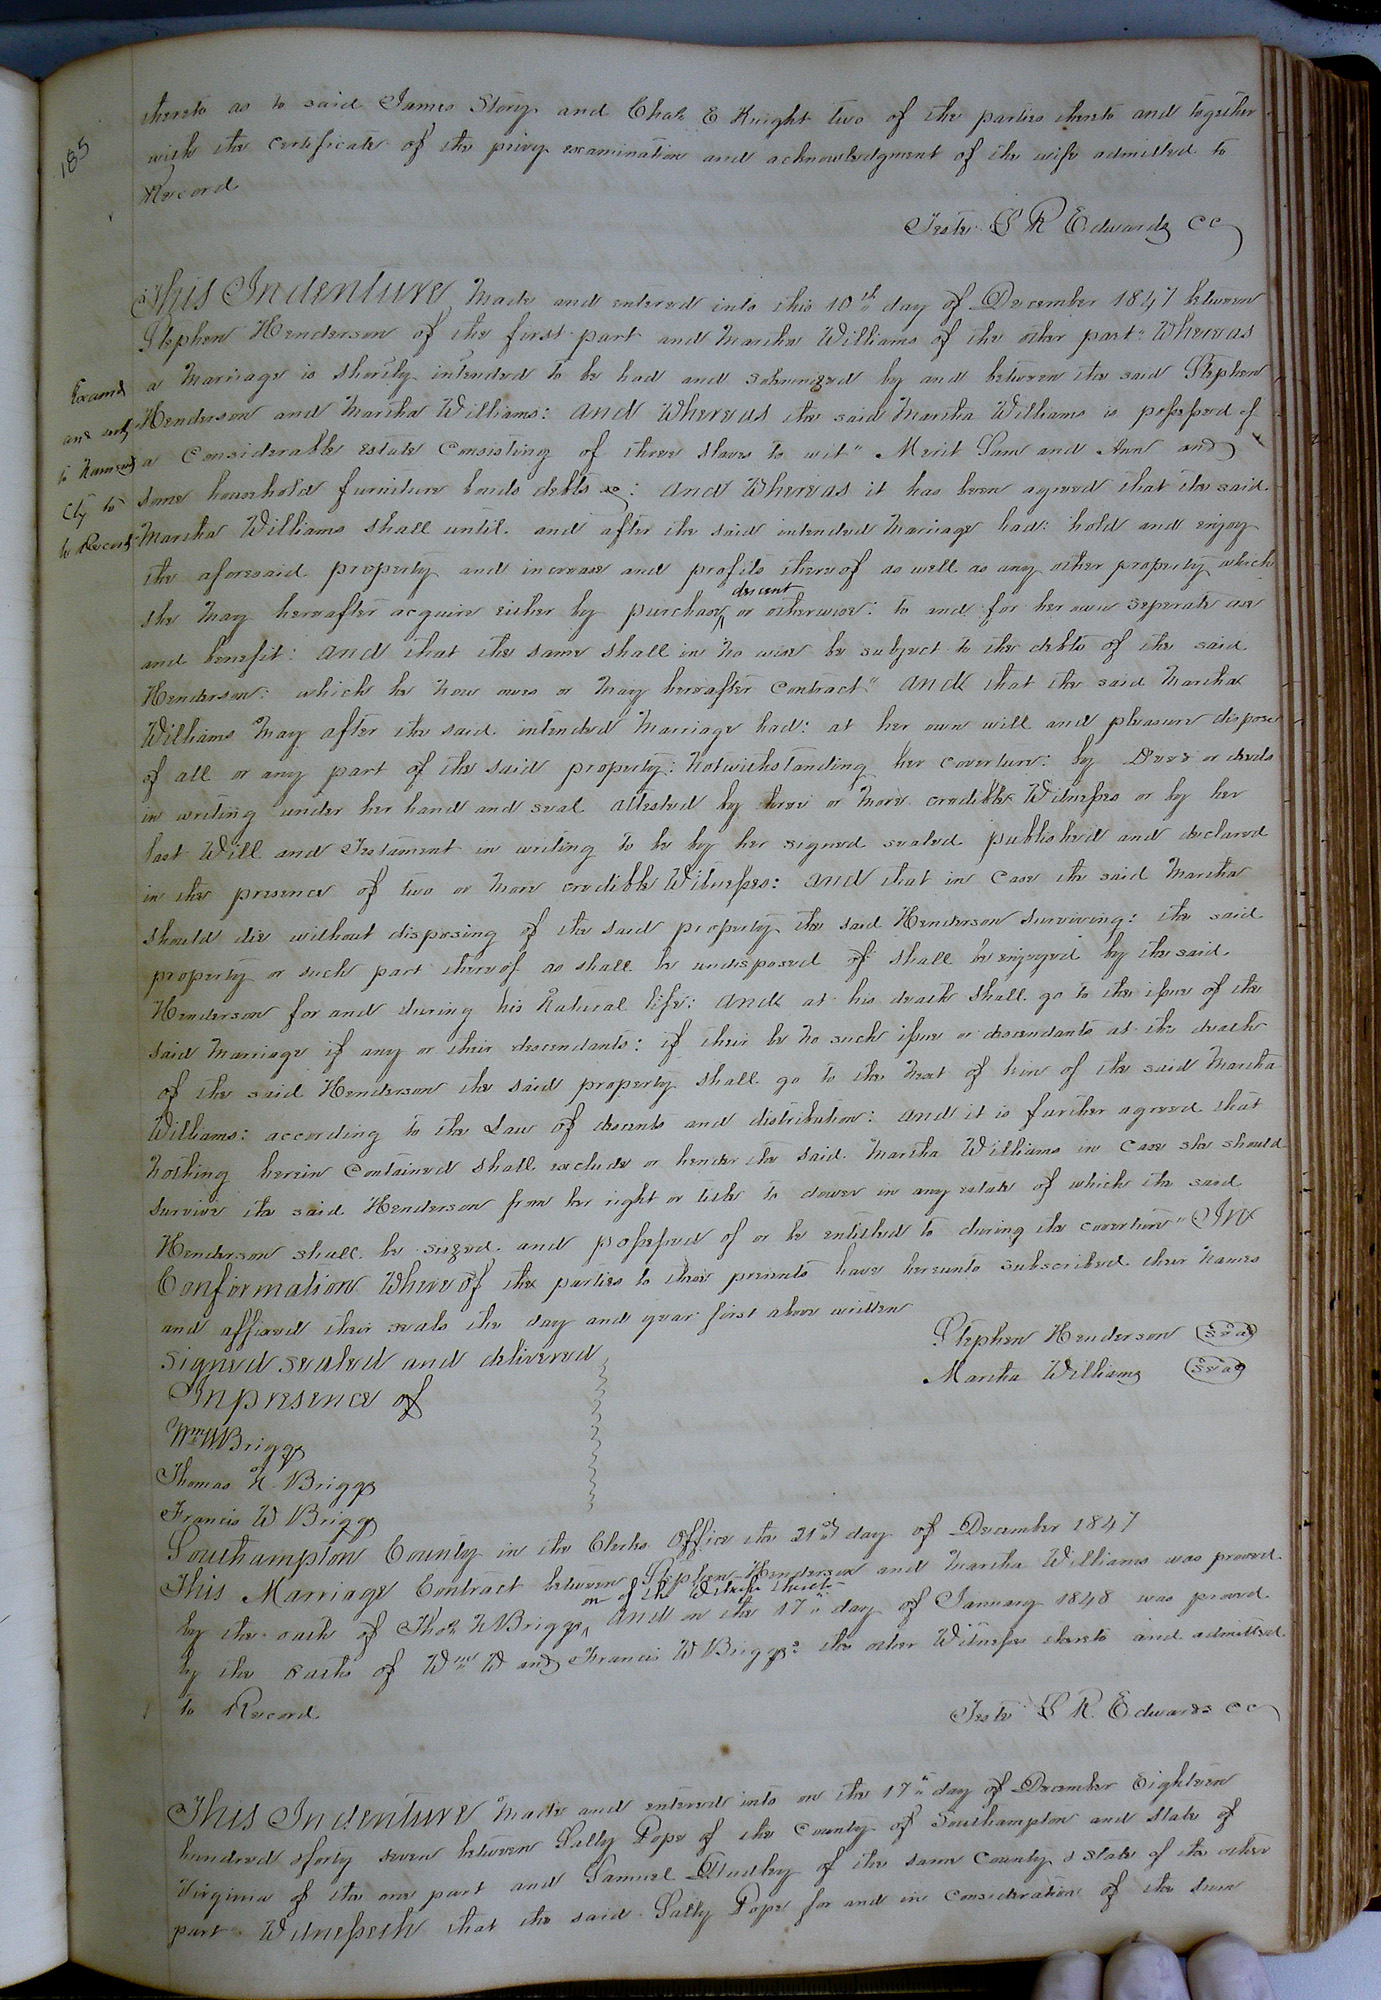 185
thereto as to said James Story and Chas E Knight two of the parties thereto and together
with the certificate of the privy examination and acknowledgment of the wife admitted to
Record
Teste L R Edwards CC
This Indenture Made and entered into this 10th day of December 1847 between
Stephen Henderson of the first part and Martha Williams of the other part: Whereas
a Marriage is shortly intended to be had and solemnized by and between the said Stephen
Henderson and Martha Williams: and Whereas the said Martha Williams is possessed of
a Considerable estate Consisting of three slaves to wit" Merit Sam and Ann and
some household furniture bonds debts &c: and Whereas it has been agreed that the said
Martha Williams shall until and after the said intended Marriage had: hold and enjoy
the aforesaid property and increase and profits thereof as well as any other property which
she may hereafter acquire either by purchase descent or otherwise: to and for her own seperate use
and benefit: and that the same shall in no wise be subject to the debts of the said
Henderson: which he now owes or may hereafter Contract" and that the said Martha
Williams May after the said intended Marriage had: at her own will and pleasure dispose
of all or any part of the said property: notwithstanding her coverture: by Deed or deeds
in writing under her hand and seal attested by three or more credible Witnesses or by her
last Will and Testament in writing to be by her signed sealed published and declared
in the presence of two or more credible Witnesses: and that in Case the said Martha
should die without disposing of the said property the said Henderson surviving: the said
property or such part thereof as shall be undisposed of shall be enjoyed by the said
Henderson for and during his natural life: and at his death shall go to the issue of the
said Marriage if any or their descendants: if their be no such issue or descendants at the death
of the said Henderson the said property shall go to the Next of kin of the said Martha
Williams: according to the Law of descents and distribution: and it is further agreed that
Nothing herein Contained shall exclude or hender the said Martha Williams in Case she should
survive the said Henderson from her right or title to dower in any estate of which the said
Henderson shall be siezed and possessed of or be entitled to during the coverture" In
Conformation Whereof the parties to these presents have hereunto subscribed their names
and affixed their seals the day and year first above written
Stephen Henderson Seal
Martha Williams Seal
Signed sealed and delivered
In presence of
Wm W Briggs
Thomas H. Briggs
Francis W Briggs
Southampton County in the Clerks Office the 21st day of December 1847
This Marriage Contract between Stephen Henderson and Martha Williams was proved
by the oath of Thos H Briggs one of the Witnesses thereto and on the 17th day of January 1848 was proved
by the oaths of Wm W and Francis W Briggs: the other Witnesses thereto and admitted
to Record
Teste L R. Edwards CC
This Indenture Made and entered into on the 17th day of December Eighteen
hundred & forty seven between Sally Pope of the County of Southampton and State of
Virginia of the one part and Samuel of the same County & State of the other
part Witnesseth that the said Sally Pope for and in Consideration of the sum